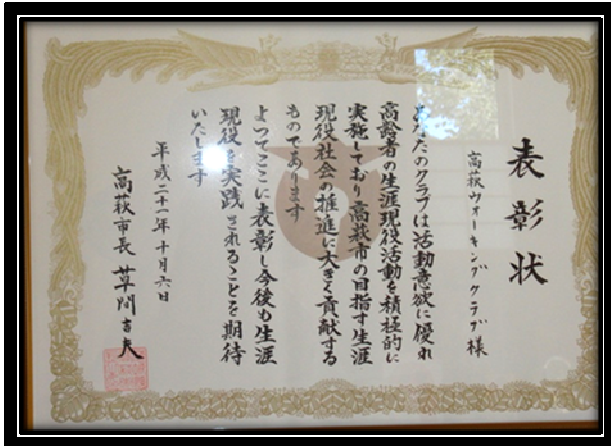 表彰状
高萩ウォーキングクラブ様
あなたのクラブは活動意欲に優れ
高齢者の生涯現役活動を積極的に
実施しており高萩市の目指す生涯
現役社会の推進に大きく貢献する
ものであります
よってここに表彰し今後も生涯
現役を実践されることを期待
いたします
平成二十一年十月六日
高萩市長 草間吉夫